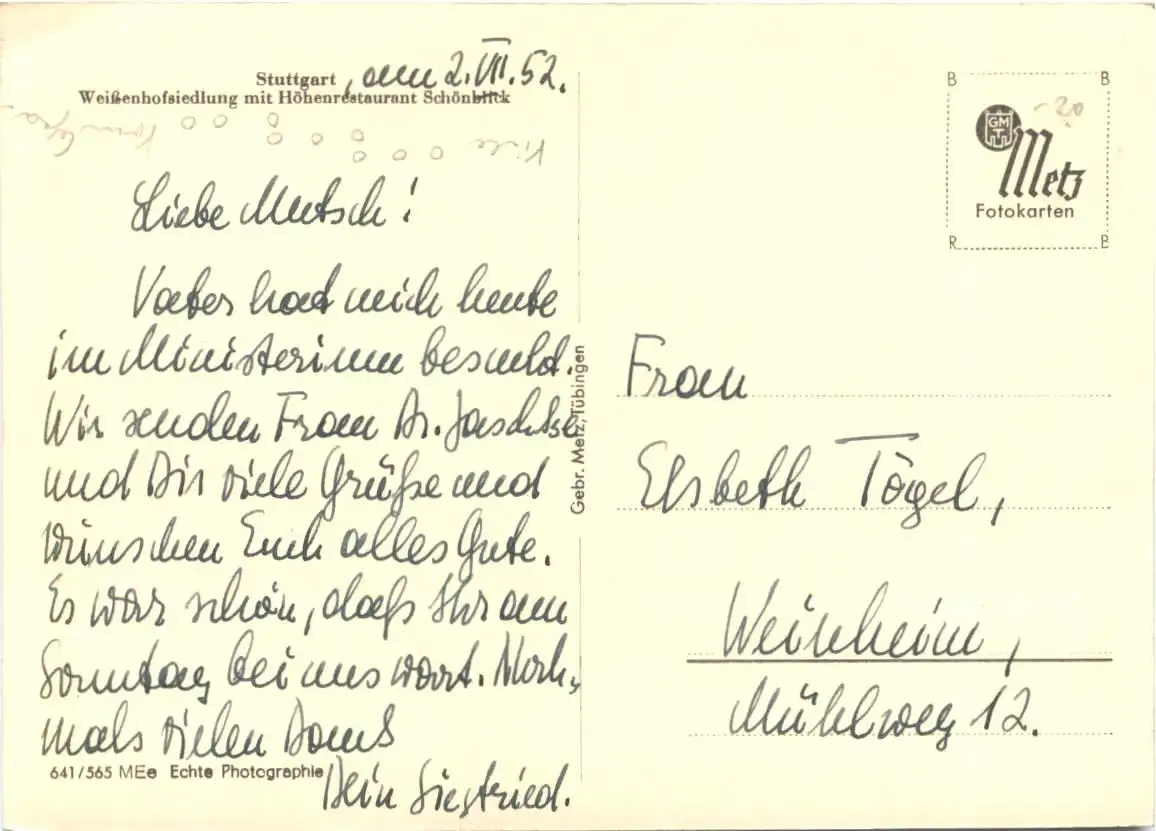 Stuttgart, am 2.VII.52.
Weißenhofsiedlung mit Höhenrestaurant Schönblick
Liebe Mutsch!
Vater hat mich heute
im Ministerium besucht.
Wir senden Frau Dr.
und Dir viele Grüße und
wünschen Euch alles Gute.
Es war schön, daß Ihr am
Sonntag bei uns wart. Noch-
mals vielen Dank
Dein Siegfried.
641/565 MEe Echte Photographie
Gebr. Metz, Tübingen
B B
GM
T
Metz
Fotokarten
R B
-20
Frau
Elsbeth Tögel,
Weinheim,
Mühlweg 12.